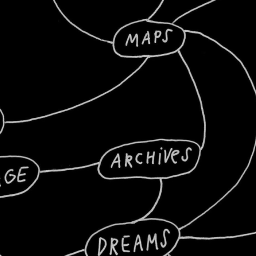 MAPS
ARCHiVeS
GE
DREAMS